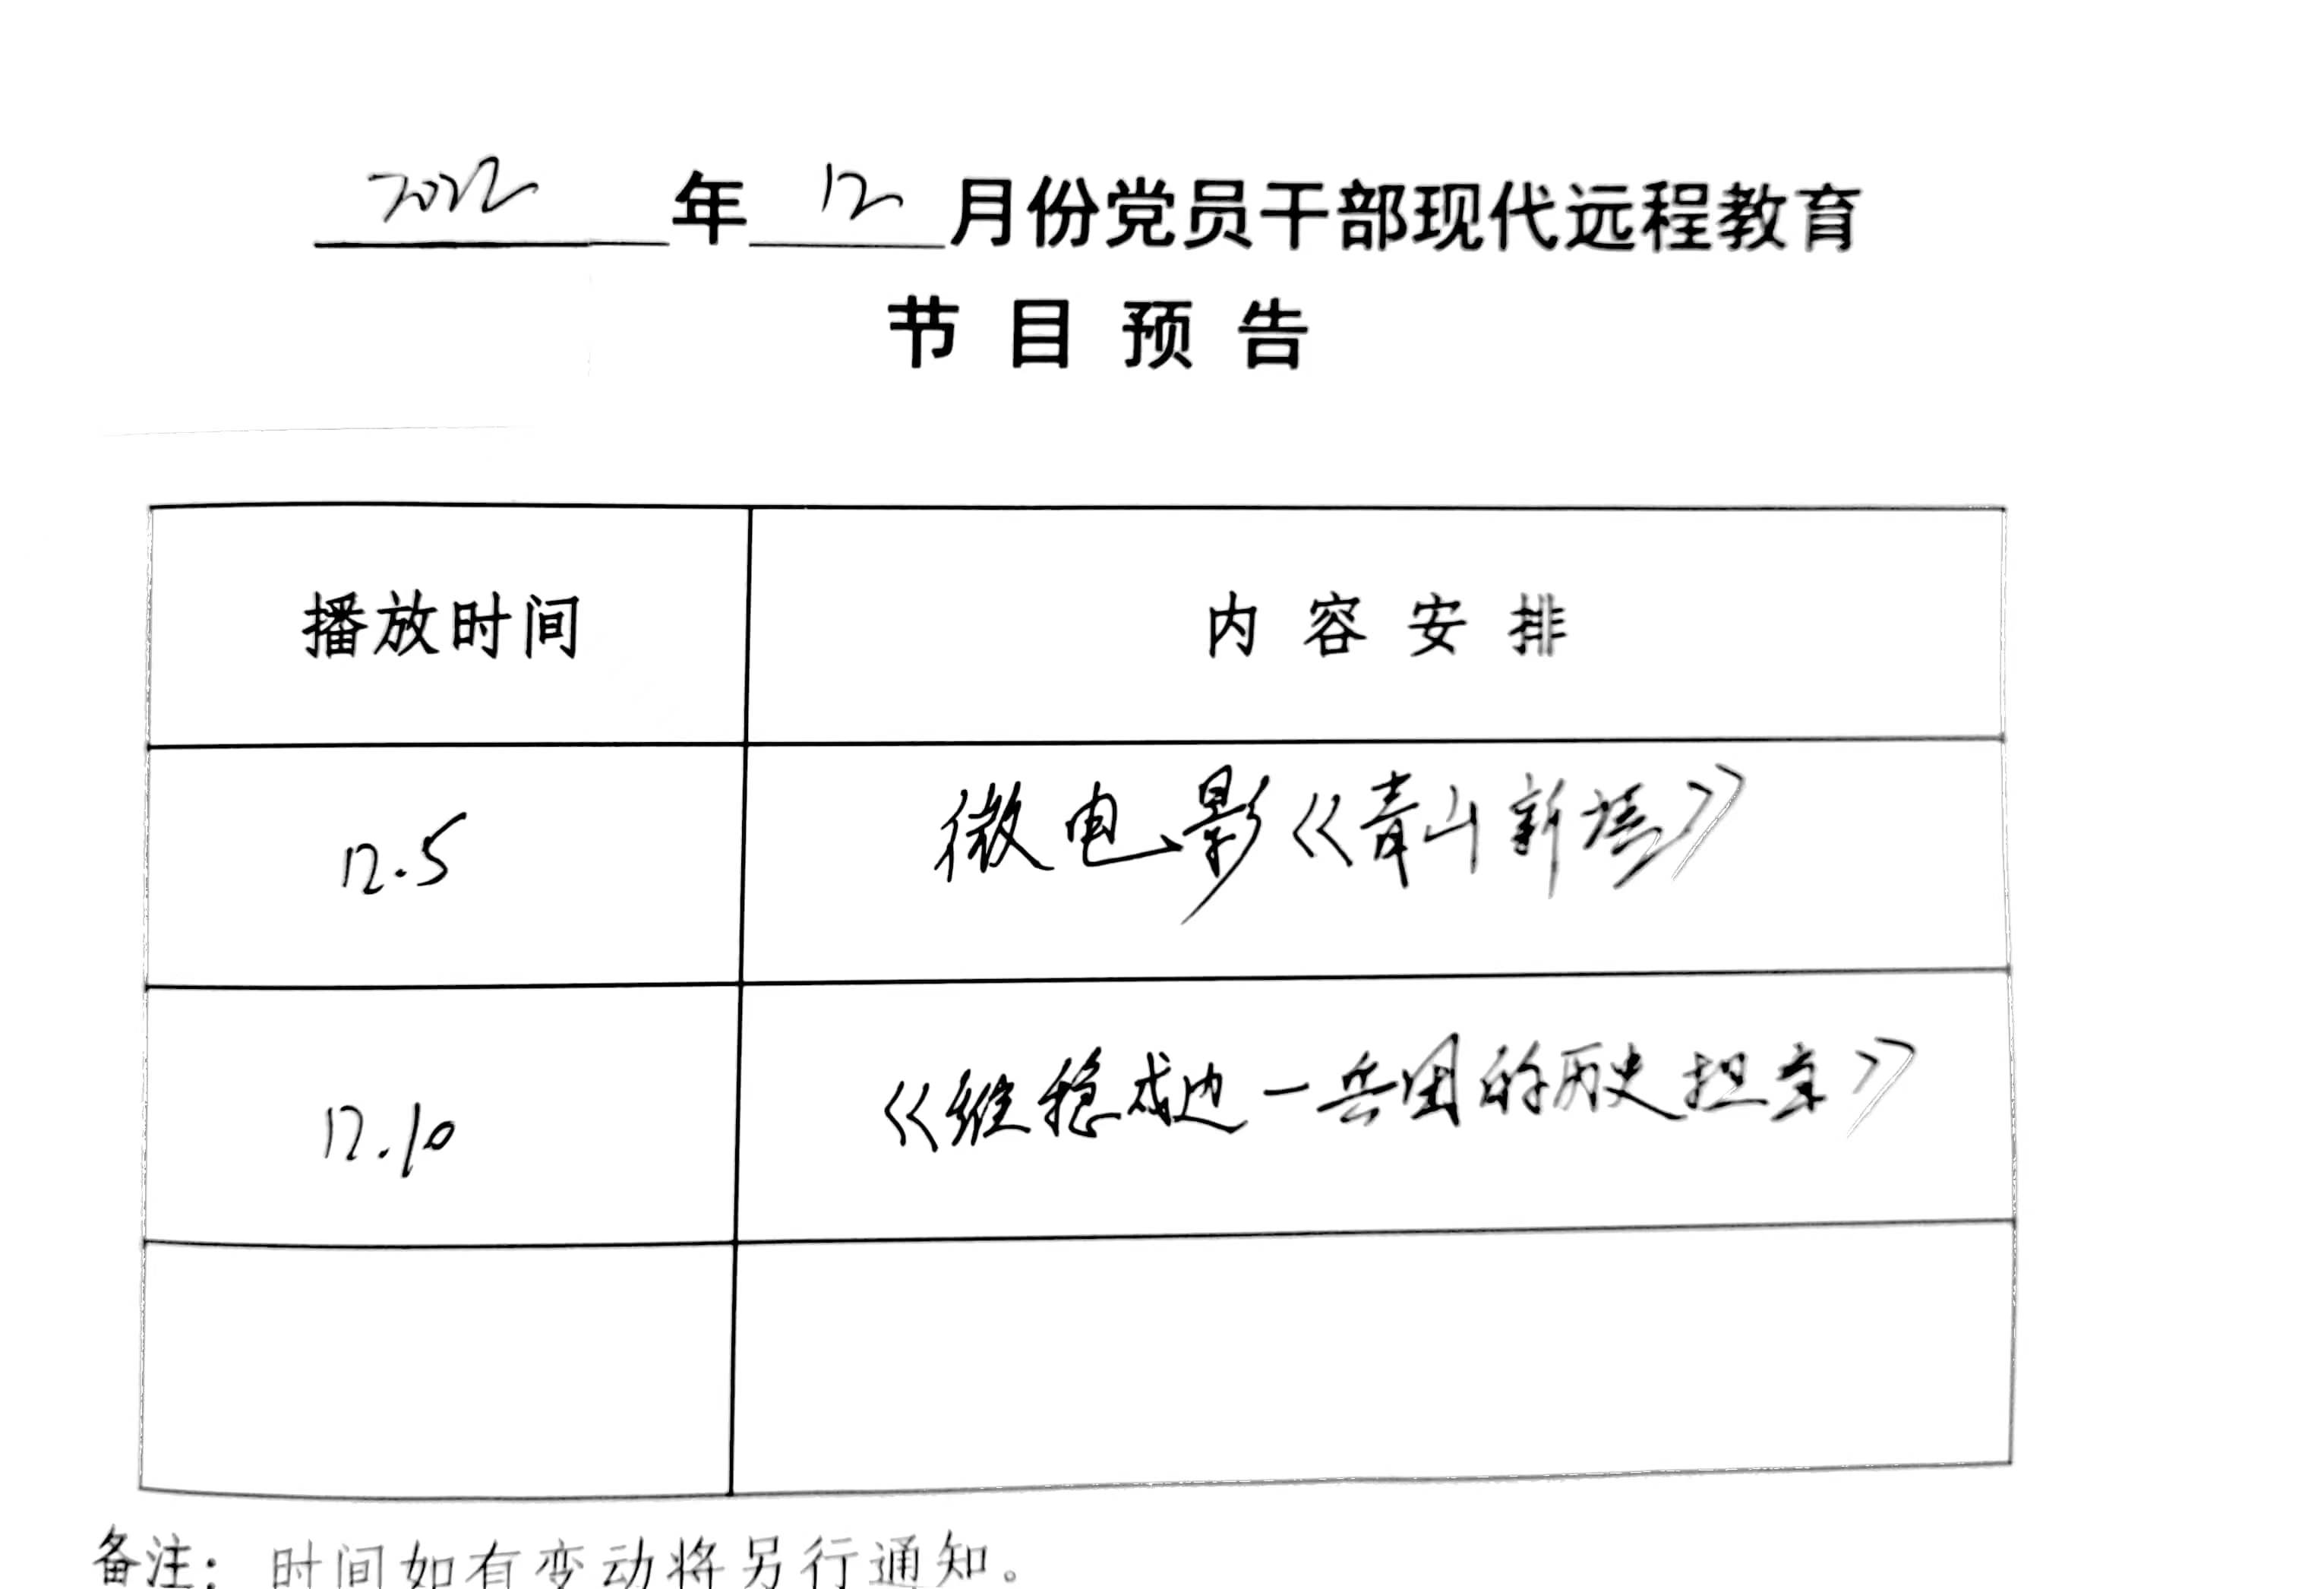 2022年12月份党员干部现代远程教育
节目预告
播放时间 内容安排
12.5 微电影《青山新塆》
12.10 《维稳戍边一兵团的历史担当》
备注：时间如有变动将另行通知。